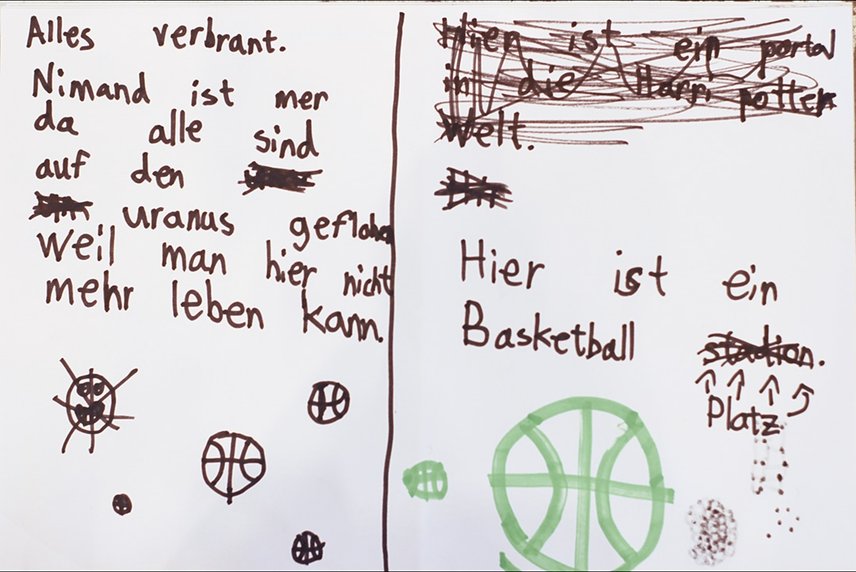 Alles verbrant.
Nimand ist mer
da alle sind
auf den
uranus geflohen
Weil man hier nicht
mehr leben kann.
Hier ist ein portal
in die Harri potter
Welt.
Hier ist ein
Basketball stadion.
Platz